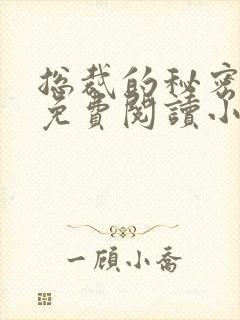 总裁的秘密
免費閱讀小
一顾小喬